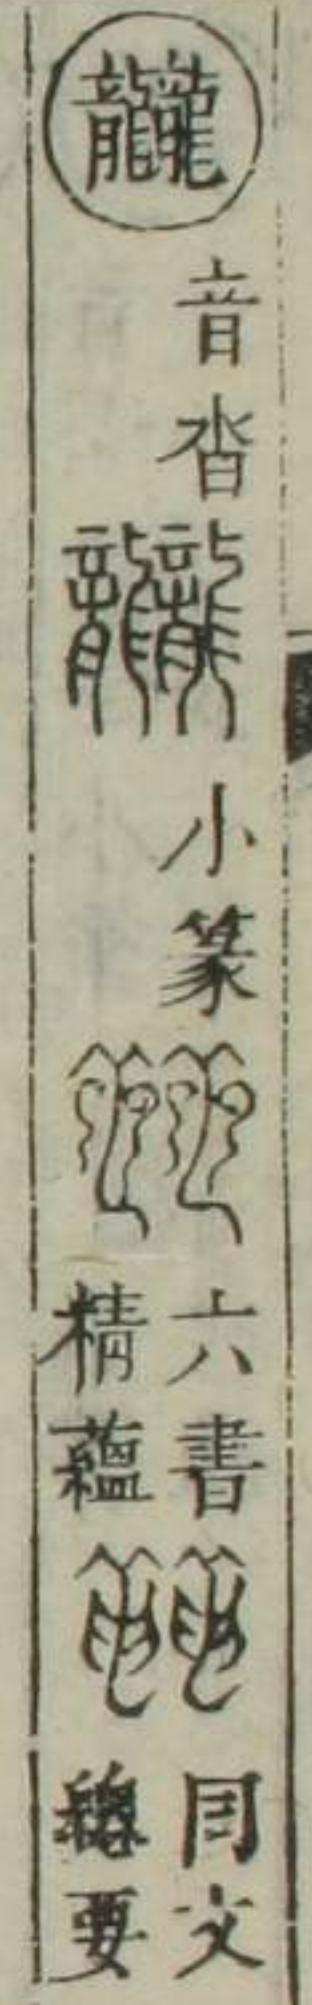 龖音沓龖小篆龖六書精蘊龖同文總要